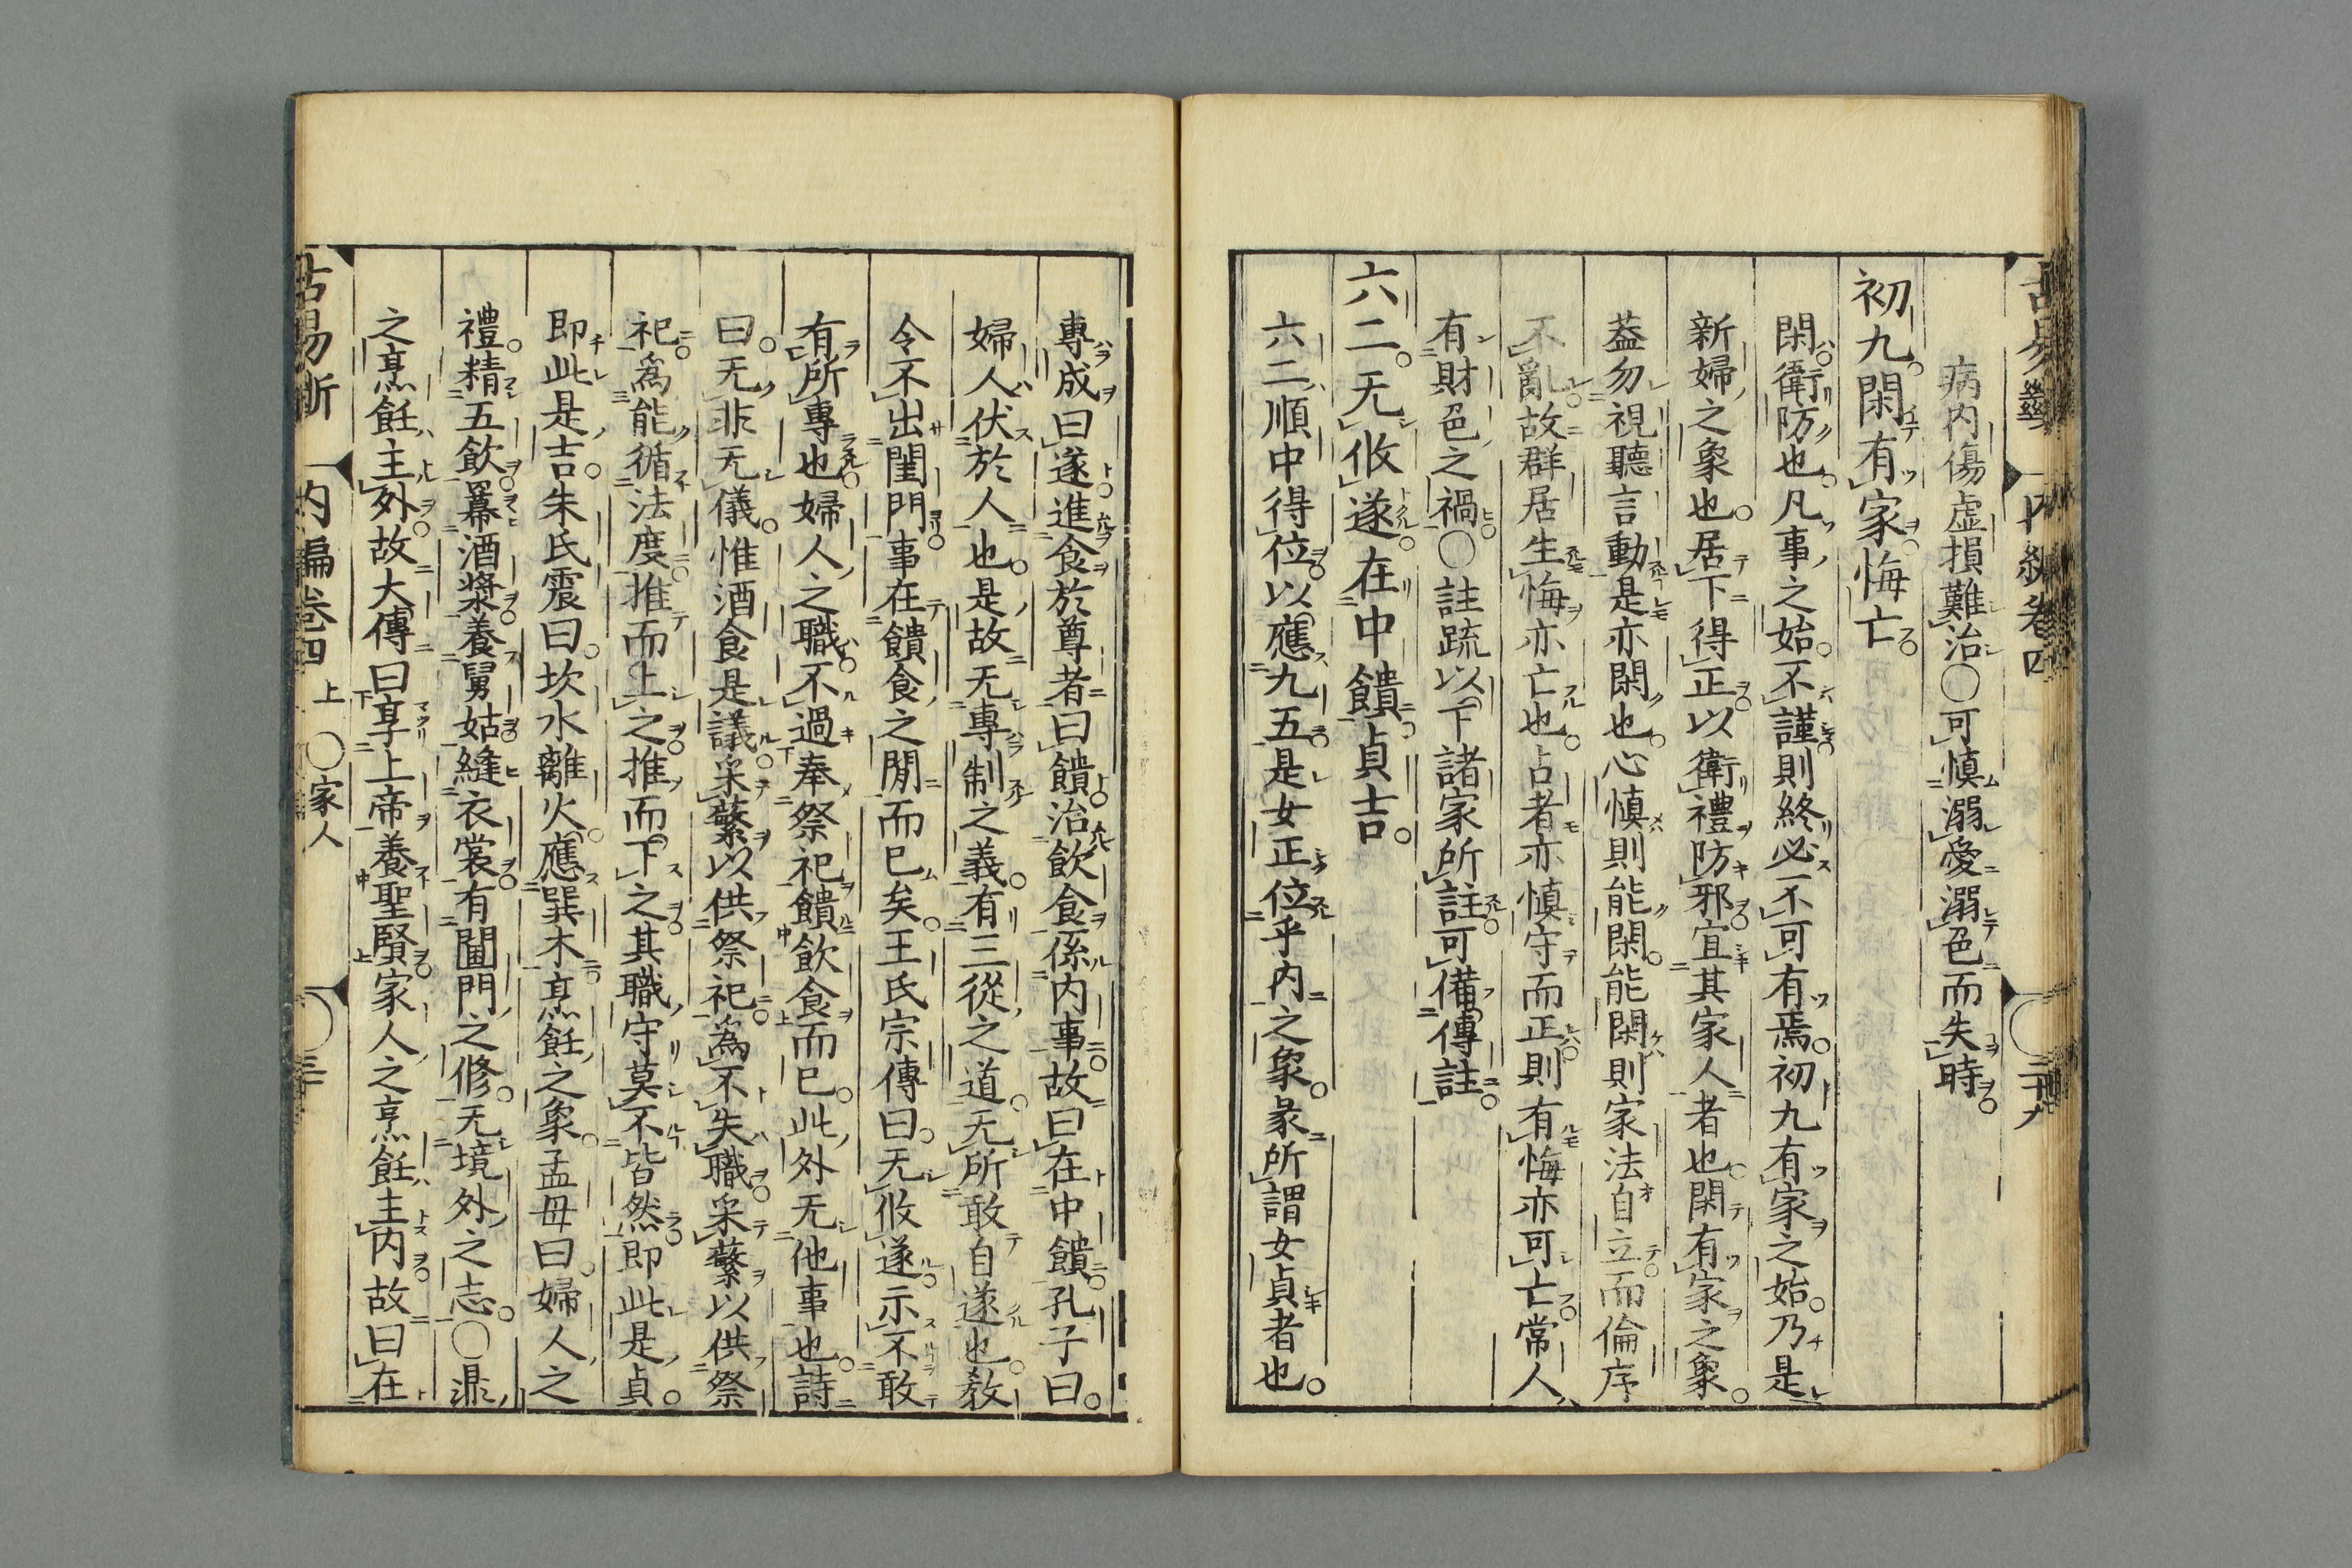 内編卷四
病内傷虚損難治〇可慎溺愛溺色而失時
初九閑有家悔亡
閑衛防也凡事之始不謹則終必不可有焉初九有家之始乃是
新婦之象也居下得正以衛禮防邪宜其家人者也閑有家之象
葢勿視聽言動是亦閑也心慎則能閑能閑則家法自立而倫序
不亂故群居生悔亦亡也占者亦慎守而正則有悔亦可亡常人
有財色之禍〇註疏以下諸家所註可備傳註
六二无攸遂在中饋貞吉
六二順中得位以應九五是女正位乎内之象彖所謂女貞者也
專成曰遂進食於尊者曰饋治飲食係内事故曰在中饋孔子曰
婦人伏於人也是故无專制之義有三從之道无所敢自遂也敎
令不出閨門事在饋食之閒而已矣王氏宗傳曰无攸遂示不敢
有所專也婦人之職不過奉祭祀饋飲食而已此外无他事也詩
曰无非无儀惟酒食是議采蘩以供祭祀為不失職采蘩以供祭
祀為能循法度推而上之推而下之其職守莫不皆然即此是貞
即此是吉朱氏震曰坎水離火應巽木烹飪之象孟母曰婦人之
禮精五飲冪酒漿養舅姑縫衣裳有閫門之修无境外之志〇鼎
之烹飪主外故大傳曰享上帝養聖賢家人之烹飪主内故曰在
占易断 内編卷四上 〇家人 三十